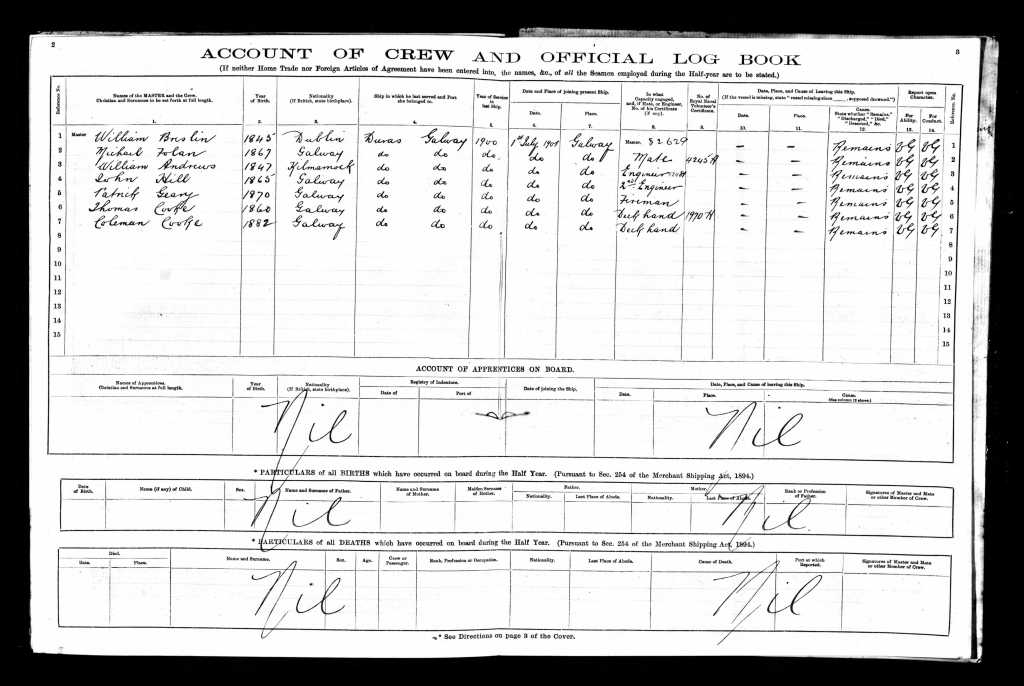 2
3
ACCOUNT OF CREW AND OFFICIAL LOG BOOK
(If neither Home Trade nor Foreign Articles of Agreement have been entered into, the names, &c., of all the Seamen employed during the Half-year are to be stated.)
Reference No. Names of the MASTER and the Crew. Christian and Surnames to be set forth at full length. Year of Birth. Nationality (If British, state birthplace). Ship in which he last served and Port she belonged to. Year of Service in last Ship. Date and Place of joining present Ship. Date. Place. In what Capacity engaged, and, if Mate, or Engineer, No. of his Certificate (if any). No. of Royal Naval Volunteer's Certificate. Date, Place, and Cause of Leaving this Ship. (If the vessel is missing, state "vessel missing since ____, supposed drowned.") Date. Place. Cause. State whether "Remains," "Discharged," "Died," "Deserted," &c. Report upon Character. For Ability. For Conduct. Reference No.
1. 2. 3. 4. 5. 6. 7. 8. 9. 10. 11. 12. 13. 14.
1 Master William Breslin 1845 Dublin Duras Galway 1900 1st July 1901 Galway Master. 82629 – – Remains VG VG 1
2 Michael Folan 1867 Galway do do do do do Mate 4245 A – – Remains VG VG 2
3 William Andrews 1847 Kilmarnock do do do do do Engineer – – Remains VG VG 3
4 John Hill 1865 Galway do do do do do 2nd Engineer – – Remains VG VG 4
5 Patrick Geary 1870 Galway do do do do do Fireman – – Remains VG VG 5
6 Thomas Cooke 1860 Galway do do do do do Deck hand 1970 A – – Remains VG VG 6
7 Coleman Cooke 1882 Galway do do do do do Deck hand – – Remains VG VG 7
8 8
9 9
10 10
11 11
12 12
13 13
14 14
15 15
ACCOUNT OF APPRENTICES ON BOARD.
Names of Apprentices. Christian and Surnames at full length. Year of Birth. Nationality (If British, state birthplace). Registry of Indenture. Date of Port of Date of joining the Ship. Date, Place, and Cause of leaving this Ship. Date. Place. Cause. (See column 12 above.)
Nil Nil
* PARTICULARS of all BIRTHS which have occurred on board during the Half Year. (Pursuant to Sec. 254 of the Merchant Shipping Act, 1894.)
Date of Birth. Name (if any) of Child. Sex. Name and Surname of Father. Name and Surname of Mother. Maiden Surname of Mother. Father. Nationality. Last Place of Abode. Mother. Nationality. Last Place of Abode. Rank or Profession of Father. Signatures of Master and Mate or other Member of Crew.
Nil Nil
* PARTICULARS of all DEATHS which have occurred on board during the Half Year. (Pursuant to Sec. 254 of the Merchant Shipping Act, 1894.)
Died. Date. Place. Name and Surname. Sex. Age. Crew or Passenger. Rank, Profession or Occupation. Nationality. Last Place of Abode. Cause of Death. Port at which Reported. Signatures of Master and Mate or other Member of Crew.
Nil Nil
* See Directions on page 3 of the Cover.